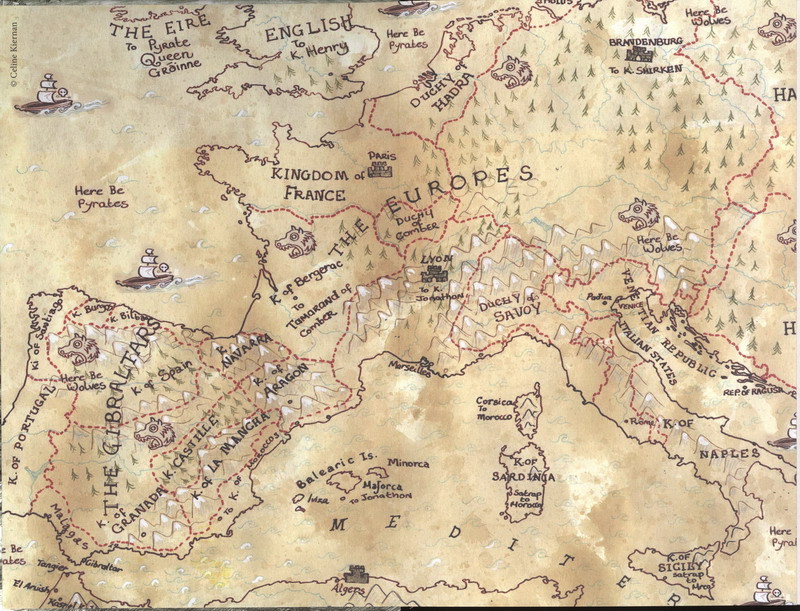 © Celine Kiernan
THE EIRE
To Pyrate
Queen
Gróinne
ENGLISH
To
K. Henry
Here Be
Pyrates
DUCHY of
HADRA
Here Be
Wolves
BRANDENBURG
To K. SHIRKEN
HA
Here Be
Pyrates
KINGDOM of
FRANCE
PARIS
THE EUROPES
DUCHY
of
COMBER
K of Bergerac
To
Tamarand of
Comber
LYON
To K.
Jonathon
DUCHY of
SAVOY
Here Be
Wolves
Padua
VENICE
VENETIAN REPUBLIC
ITALIAN STATES
REP. of RAGUSA
H
Marseilles
K. of Santiago
K. Burgos
K. Bilbao
K. of
NAVARRA
K. of
ARAGON
Here Be
Wolves
K. of Spain
THE GIBRALTARS
K. OF PORTUGAL
K. CASTILLE
K. of LA MANCHA
K. of
GRANADA
To K. of Morocco
Malaga
Corsica
To
Morocco
K. OF
SARDINIA
Satrap
to
Morocco
Rome
K. OF
NAPLES
Balearic Is.
Minorca
Majorca
to Jonathon
Ibiza
MEDITER
K. OF
SICILY
satrap
to
Here
Pyra
e Be
ates
Tangier
Gibraltar
El Araish
Algers